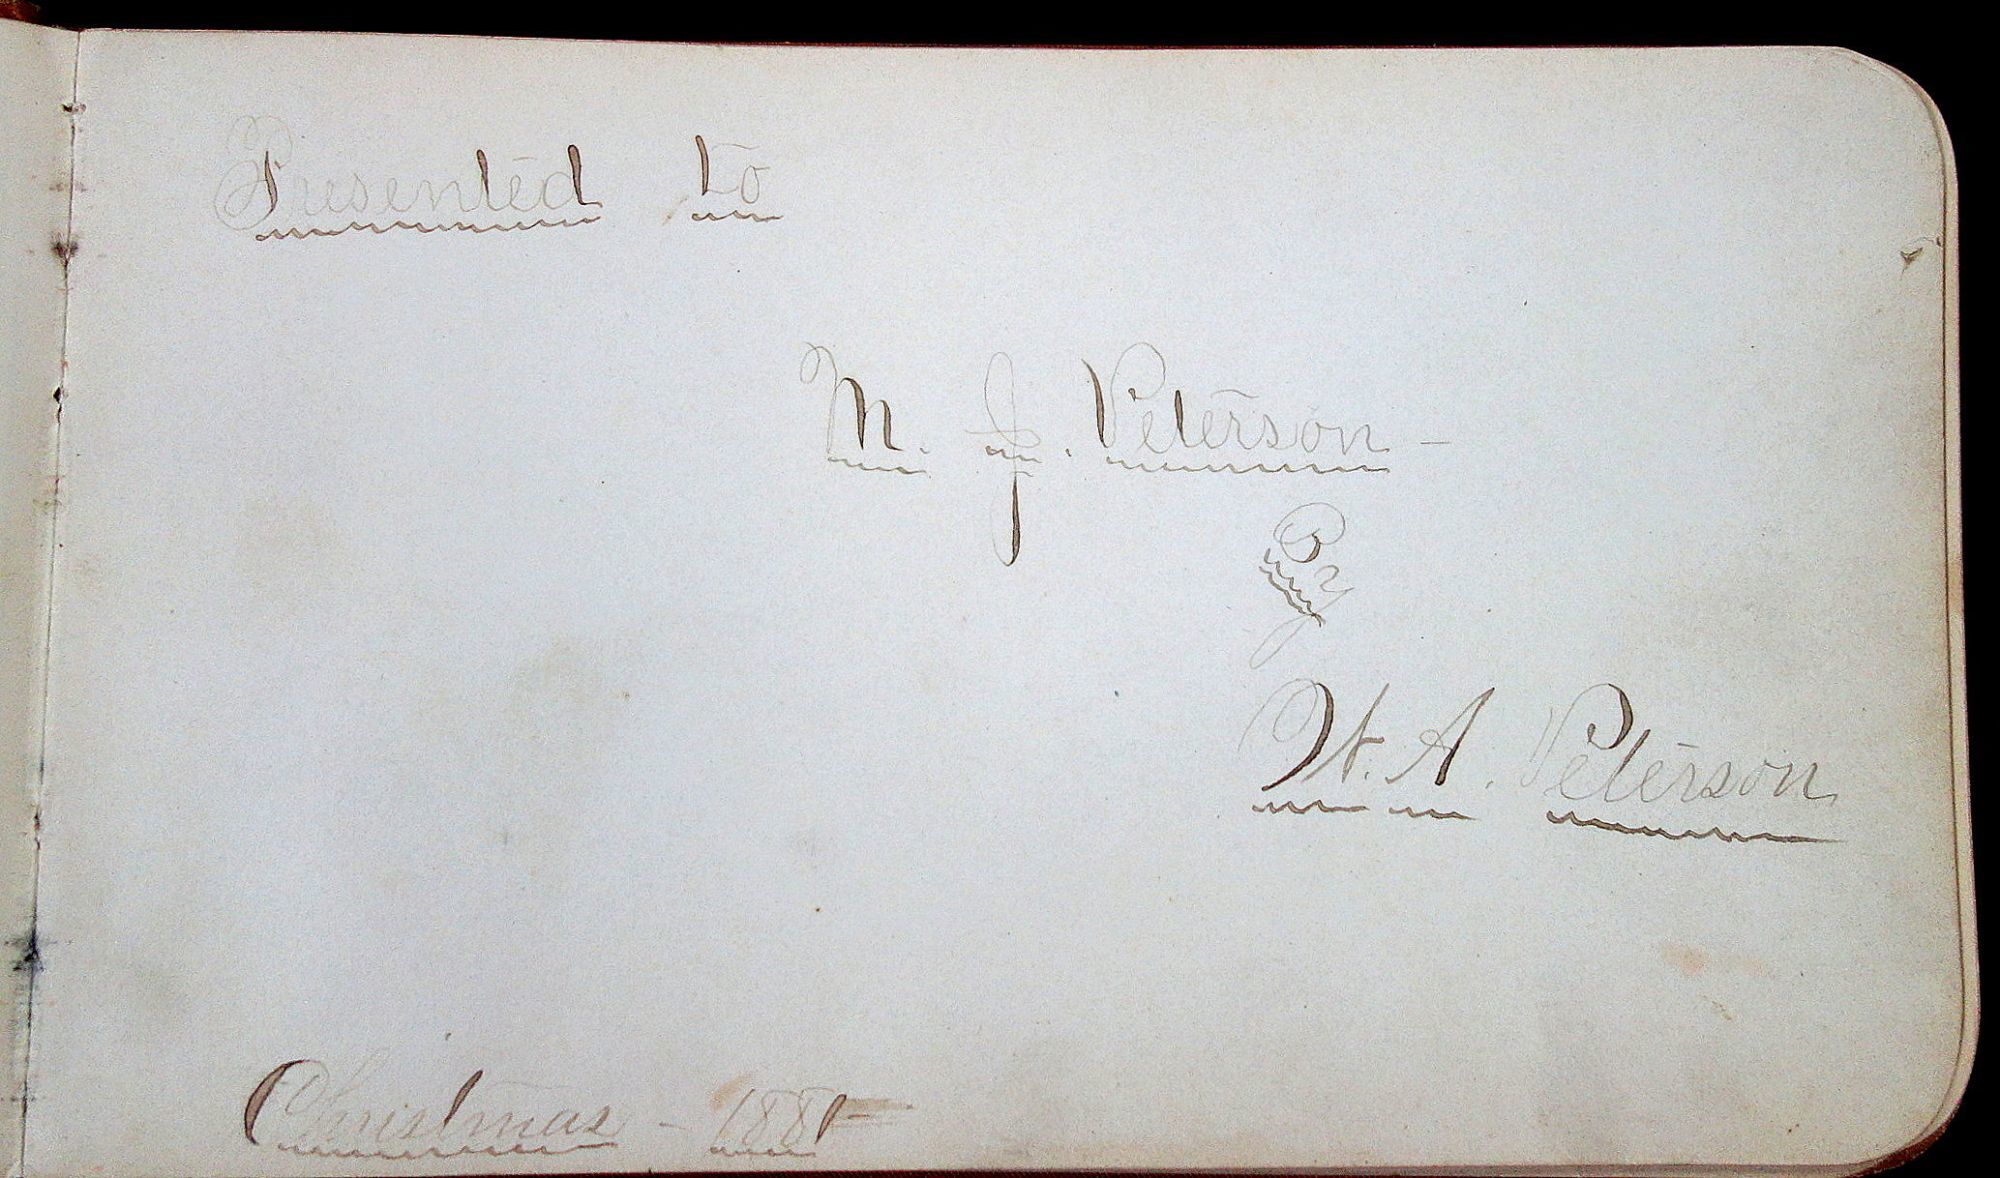 Presented to
M. J. Peterson -
By
H. A. Peterson
Christmas - 1881-